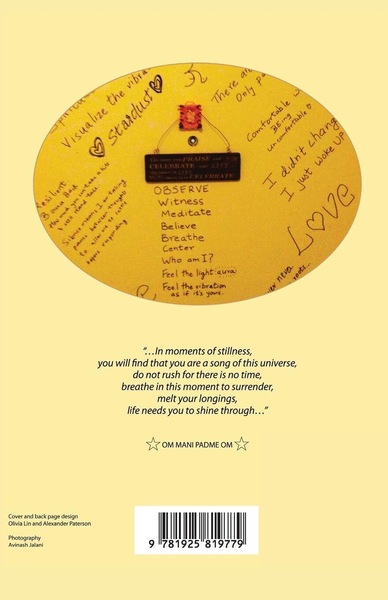 Visualize the vibra
Stardust
There are
Only pa
Comfortable w
BEing
uncomfortable
I didn't chang
I just woke UP
LOVE
Resilient
Bounce Back
OBSERVE
Witness
Meditate
Believe
Breathe
Center
Who am I?
Feel the light:aura
Feel the vibration
as if it's yours.
“…In moments of stillness,
you will find that you are a song of this universe,
do not rush for there is no time,
breathe in this moment to surrender,
melt your longings,
life needs you to shine through…”
OM MANI PADME OM
Cover and back page design
Olivia Lin and Alexander Paterson
Photography
Avinash Jalani
9 781925 819779